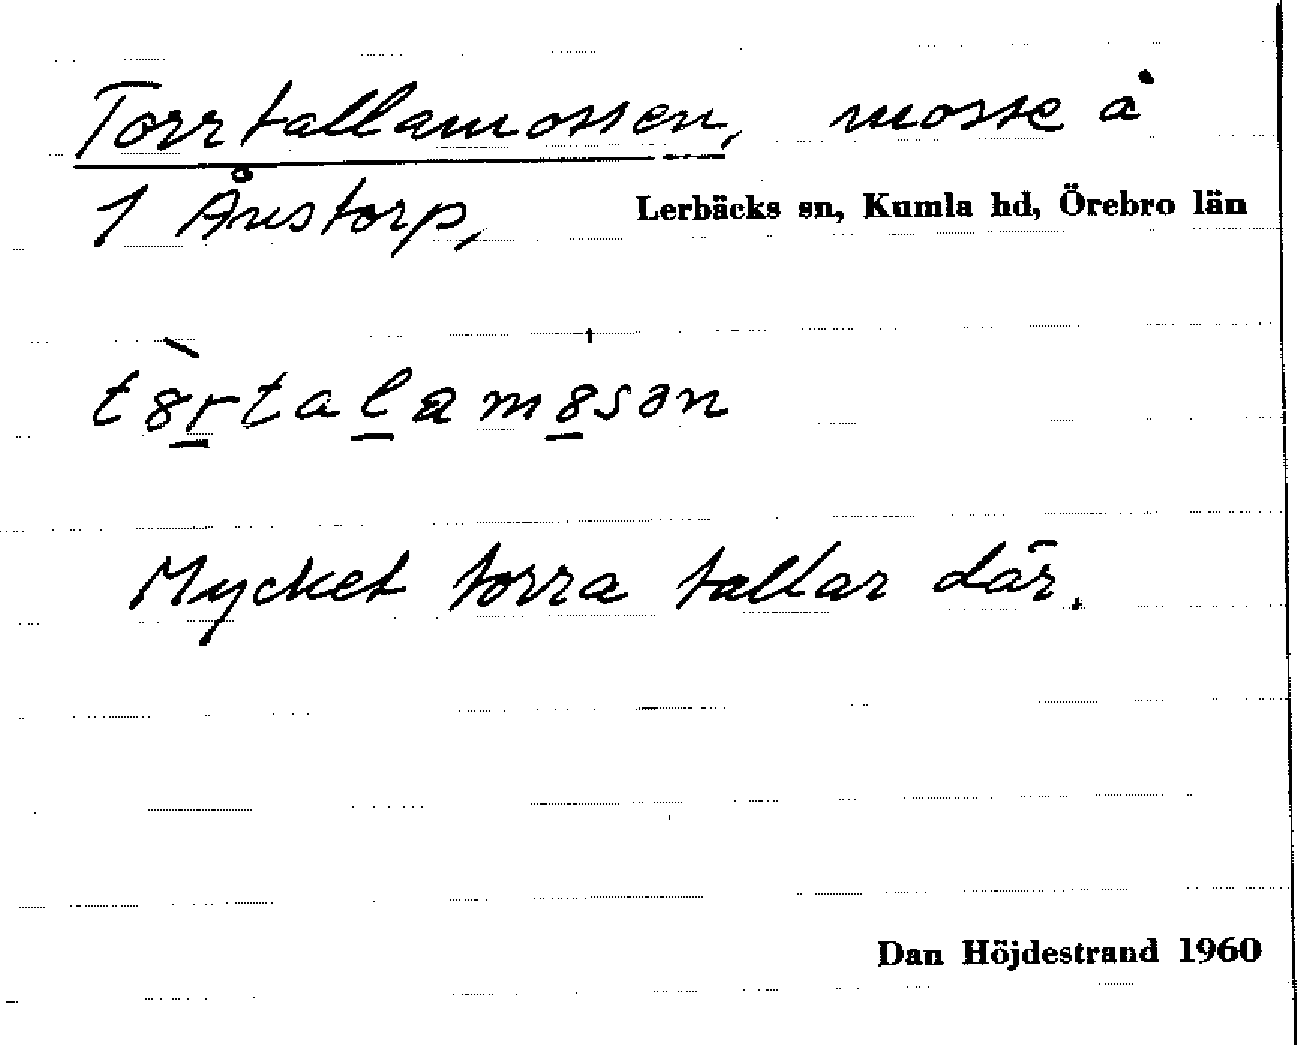 Torrtallamossen, mosse å
1 Åvstorp, Lerbäcks sn, Kumla hd, Örebro län
tȣ̀rtalamȣsən
Mycket torra tallar där.
Dan Höjdestrand 1960